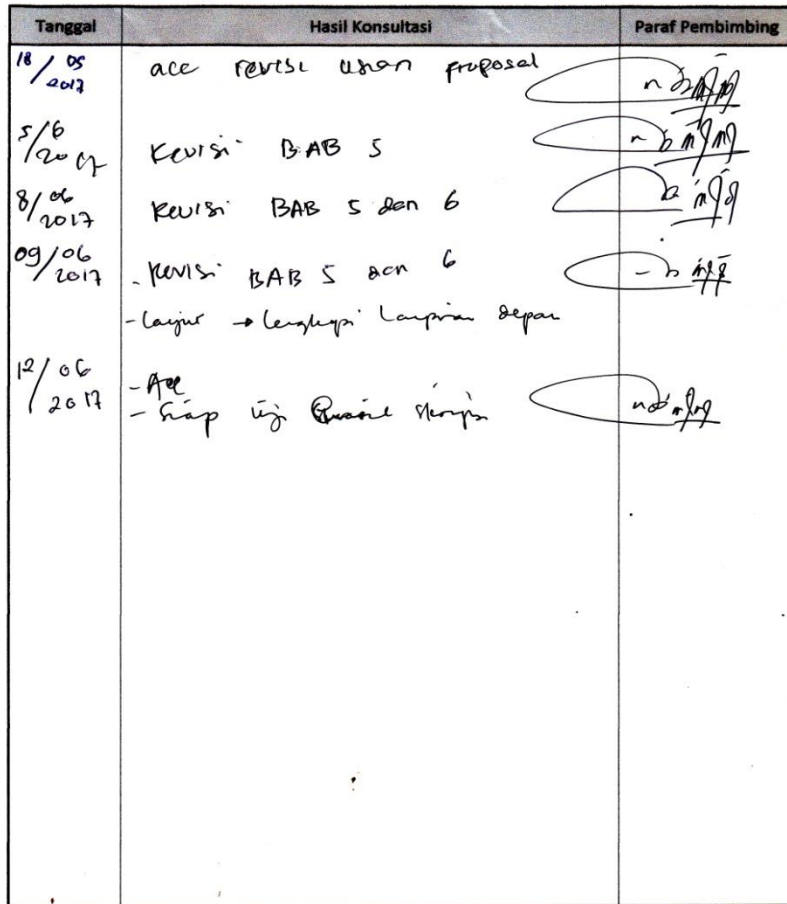 Tanggal Hasil Konsultasi Paraf Pembimbing
18/05 2017 acc revisi ujian proposal
5/6 2017 Revisi BAB 5
8/06 2017 Revisi BAB 5 dan 6
09/06 2017 - Revisi BAB 5 dan 6
- Lanjut → lengkapi Lampiran depan
12/06 2017 - Acc
- Siap uji skripsi